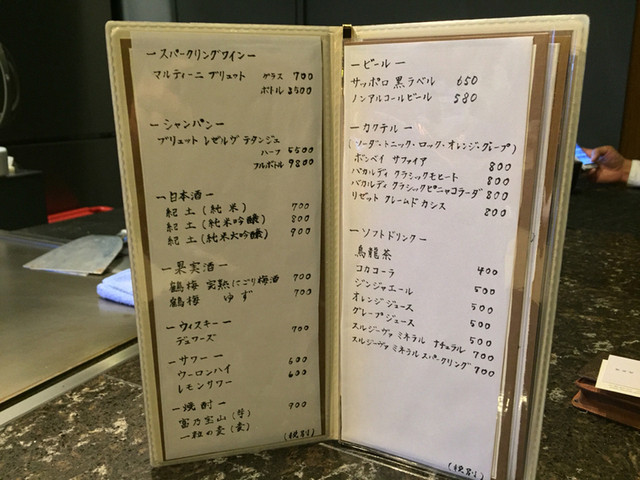 ースパークリングワインー
マルティーニ ブリュット グラス 700
ボトル 3500
ーシャンパンー
ブリュット レゼルヴ テタンジュ
ハーフ 5500
フルボトル 9800
ー日本酒ー
紀土(純米) 700
紀土(純米吟醸) 800
紀土(純米大吟醸) 900
ー果実酒ー
鶴梅 完熟にごり梅酒 700
鶴梅 ゆず 700
ーウィスキーー
デュワーズ 700
ーサワーー
ウーロンハイ 600
レモンサワー 600
ー焼酎ー 900
富乃宝山(芋)
一粒の麦(麦)
(税別)
ービールー
サッポロ 黒ラベル 650
ノンアルコールビール 580
ーカクテルー
(ソーダ・トニック・ロック・オレンジ・グレープ)
ボンベイ サファイア 800
バカルディ クラシックモヒート 800
バカルディ クラシックピニャコラーダ 800
リゼット クレームド カシス 800
ーソフトドリンクー
烏龍茶 400
コカコーラ 500
ジンジャエール 500
オレンジジュース 500
グレープジュース 500
スルジーヴァ ミネラル ナチュラル 700
スルジーヴァ ミネラル スパークリング 700
(税別)